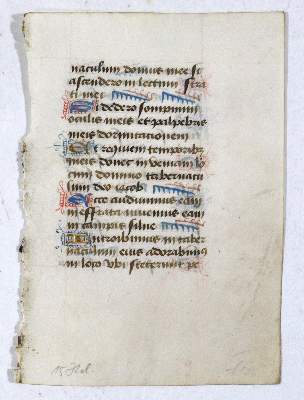 naculum domus mee si
ascendero in lectum stra
ti mei
Si dedero sompnum
oculis meis et palpebris
meis dormitationem
Et requiem temporibus
meis donec inveniam lo
cum domino tabernacu
lum deo iacob
Ecce audivimus eam
in effrata invenimus eam
in campis silve
Introibimus in taber
naculum eius adorabimus
in loco ubi steterunt pe